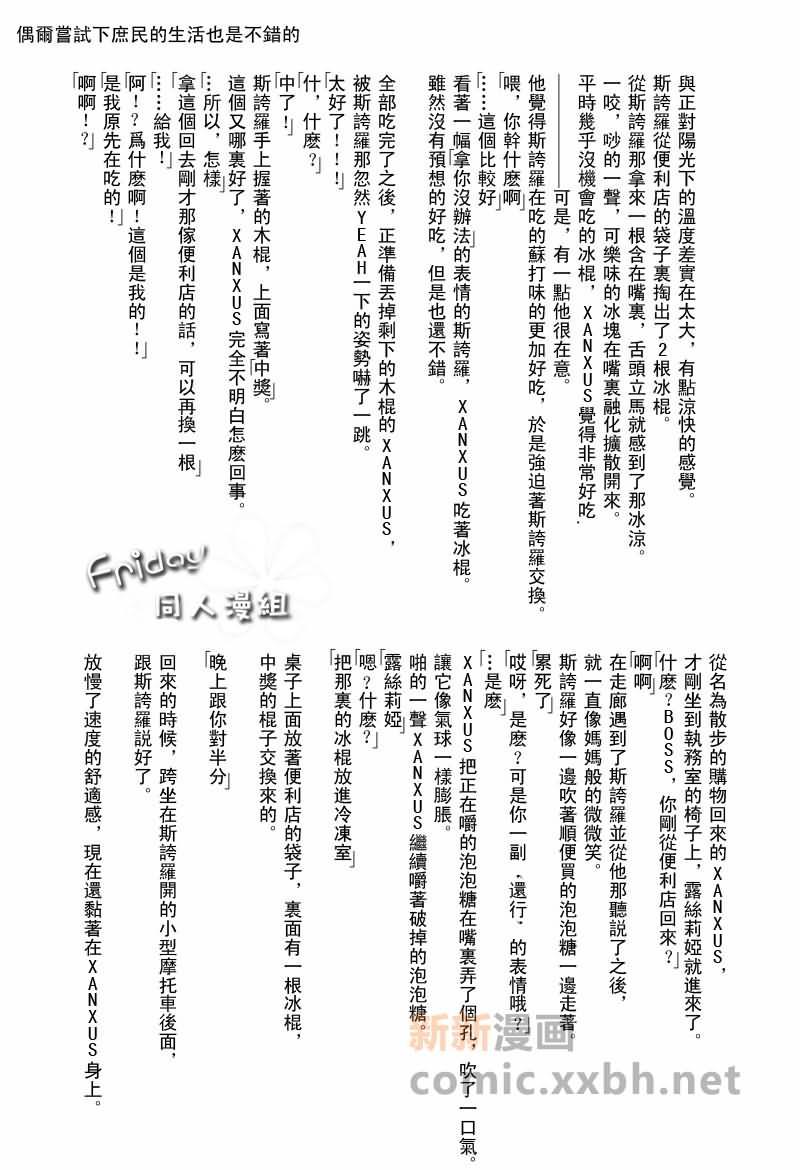 偶爾嘗試下庶民的生活也是不錯的
與正對陽光下的溫度差實在太大，有點涼快的感覺。
斯誇羅從便利店的袋子裏掏出了2根冰棍。
從斯誇羅那拿來一根含在嘴裏，舌頭立馬就感到了那冰涼。
一咬，吵的一聲，可樂味的冰塊在嘴裏融化擴散開來。
平時幾乎沒機會吃的冰棍，XANXUS覺得非常好吃.
————————可是，有一點他很在意。
他覺得斯誇羅在吃的蘇打味的更加好吃，於是強迫著斯誇羅交換。
「喂，你幹什麽啊」
「……這個比較好」
看著一幅「拿你沒辦法」的表情的斯誇羅，XANXUS吃著冰棍。
雖然沒有預想的好吃，但是也還不錯。
全部吃完了之後，正準備丟掉剩下的木棍的XANXUS，
被斯誇羅那忽然YEAH一下的姿勢嚇了一跳。
「太好了！！！」
「什，什麽？」
「中了！」
斯誇羅手上握著的木棍，上面寫著「中獎」。
這個又哪裏好了，XANXUS完全不明白怎麽回事。
「…所以，怎樣」
「拿這個回去剛才那傢便利店的話，可以再換一根」
「……給我！」
「阿！？爲什麽啊！這個是我的！！」
「是我原先在吃的！」
「啊啊！？」
Friday
同人漫組
從名為散步的購物回來的XANXUS，
才剛坐到執務室的椅子上，露絲莉婭就進來了。
「什麽？BOSS，你剛從便利店回來？」
「啊啊」
在走廊遇到了斯誇羅並從他那聽説了之後，
就一直像媽媽般的微微笑。
斯誇羅好像一邊吹著順便買的泡泡糖一邊走著。
「累死了」
「哎呀，是麽？可是你一副‘還行’的表情哦？」
「…是麽」
XANXUS把正在嚼的泡泡糖在嘴裏弄了個孔，吹了一口氣。
讓它像氣球一樣膨脹。
啪的一聲XANXUS繼續嚼著破掉的泡泡糖。
「露絲莉婭」
「嗯？什麽？」
「把那裏的冰棍放進冷凍室」
桌子上面放著便利店的袋子，裏面有一根冰棍，
中獎的棍子交換來的。
「晚上跟你對半分」
回來的時候，跨坐在斯誇羅開的小型摩托車後面，
跟斯誇羅説好了。
放慢了速度的舒適感，現在還黏著在XANXUS身上。
新新漫画
comic.xxbh.net